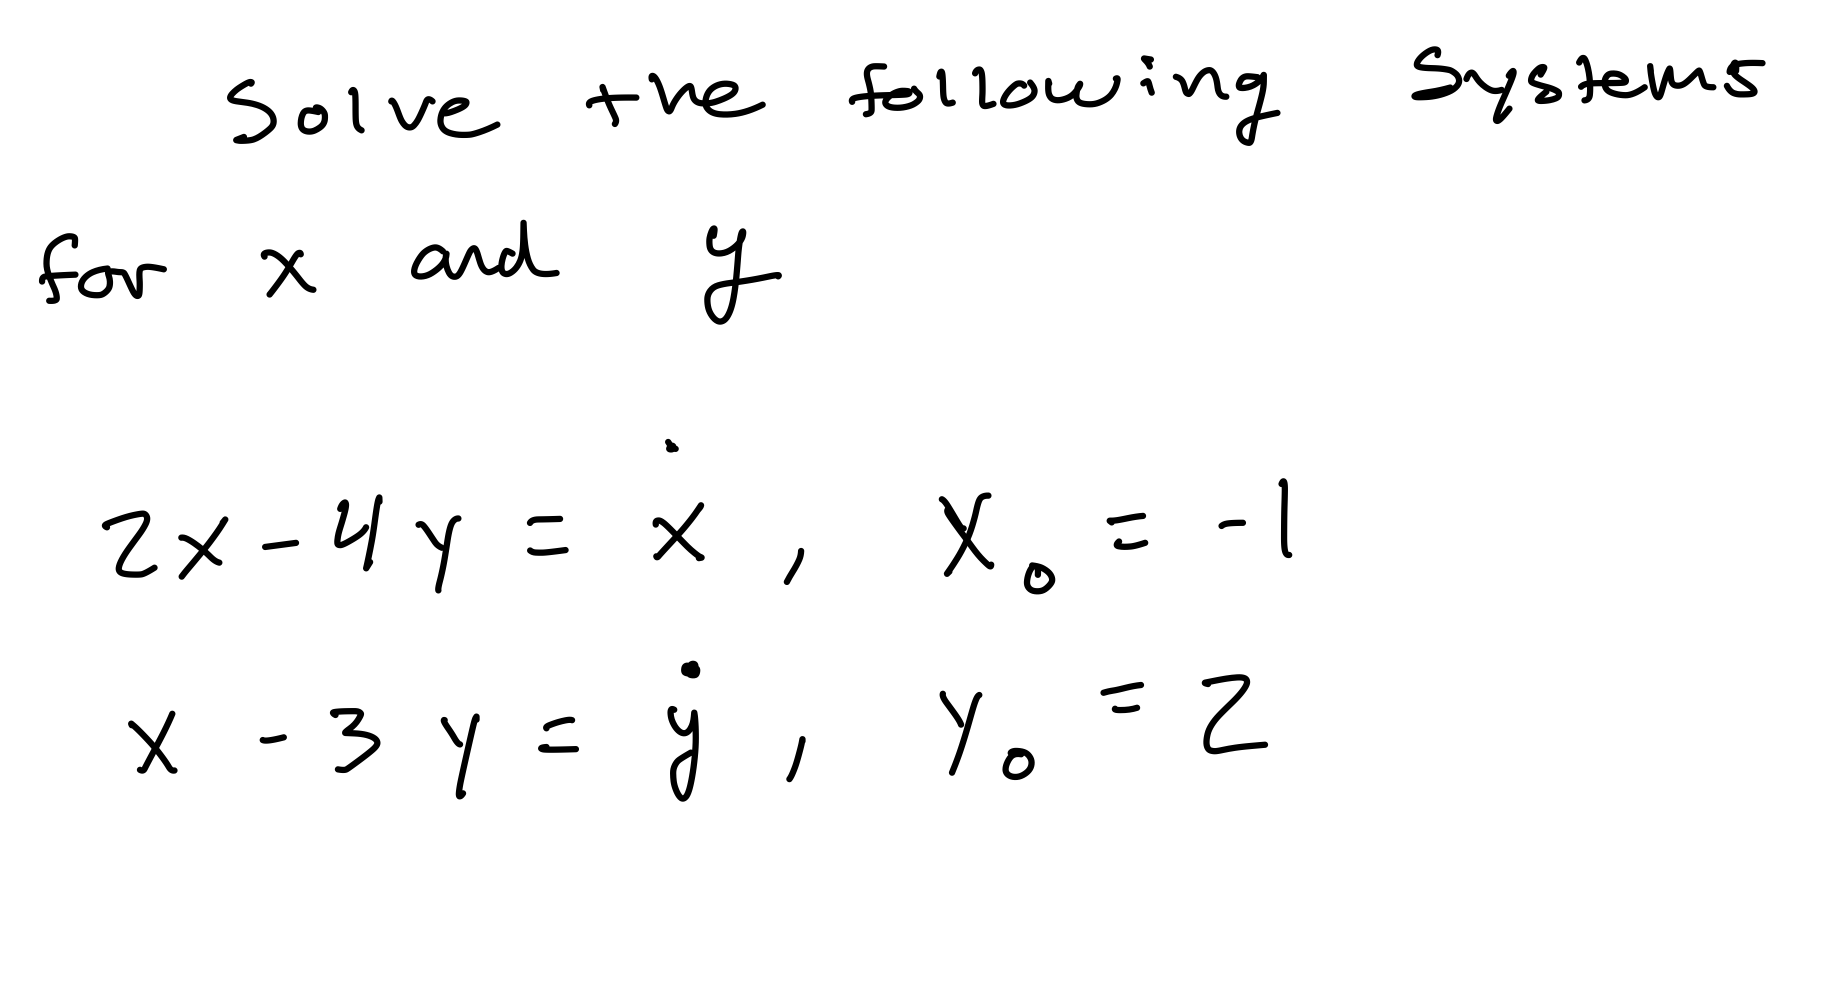 Solve the following systems
for x and y
2x - 4y = ẋ , x₀ = -1
x - 3y = ẏ , y₀ = 2